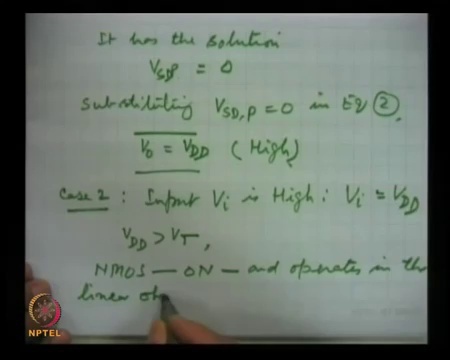 It has the solution
V_SDP = 0
Substituting V_SD,P = 0 in Eq (2),
V_0 = V_DD (High)
Case 2 : Input V_i is High : V_i = V_DD
V_DD > V_T,
NMOS — ON — and operates in the
linear oh
NPTEL